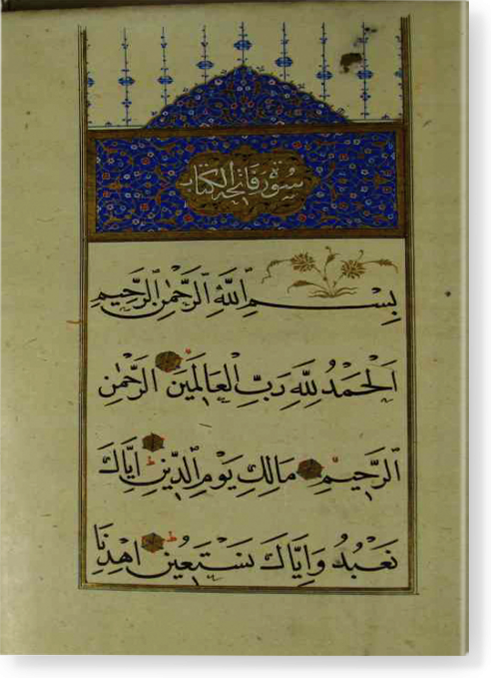 سورة فاتحة الكتاب
بِسْمِ اللَّهِ الرَّحْمٰنِ الرَّحِيمِ
اَلْحَمْدُ لِلّٰهِ رَبِّ الْعَالَمِينَ الرَّحْمٰنِ
الرَّحِيمِ مَالِكِ يَوْمِ الدِّينِ اِيَّاكَ
نَعْبُدُ وَاِيَّاكَ نَسْتَعِينُ اِهْدِنَا